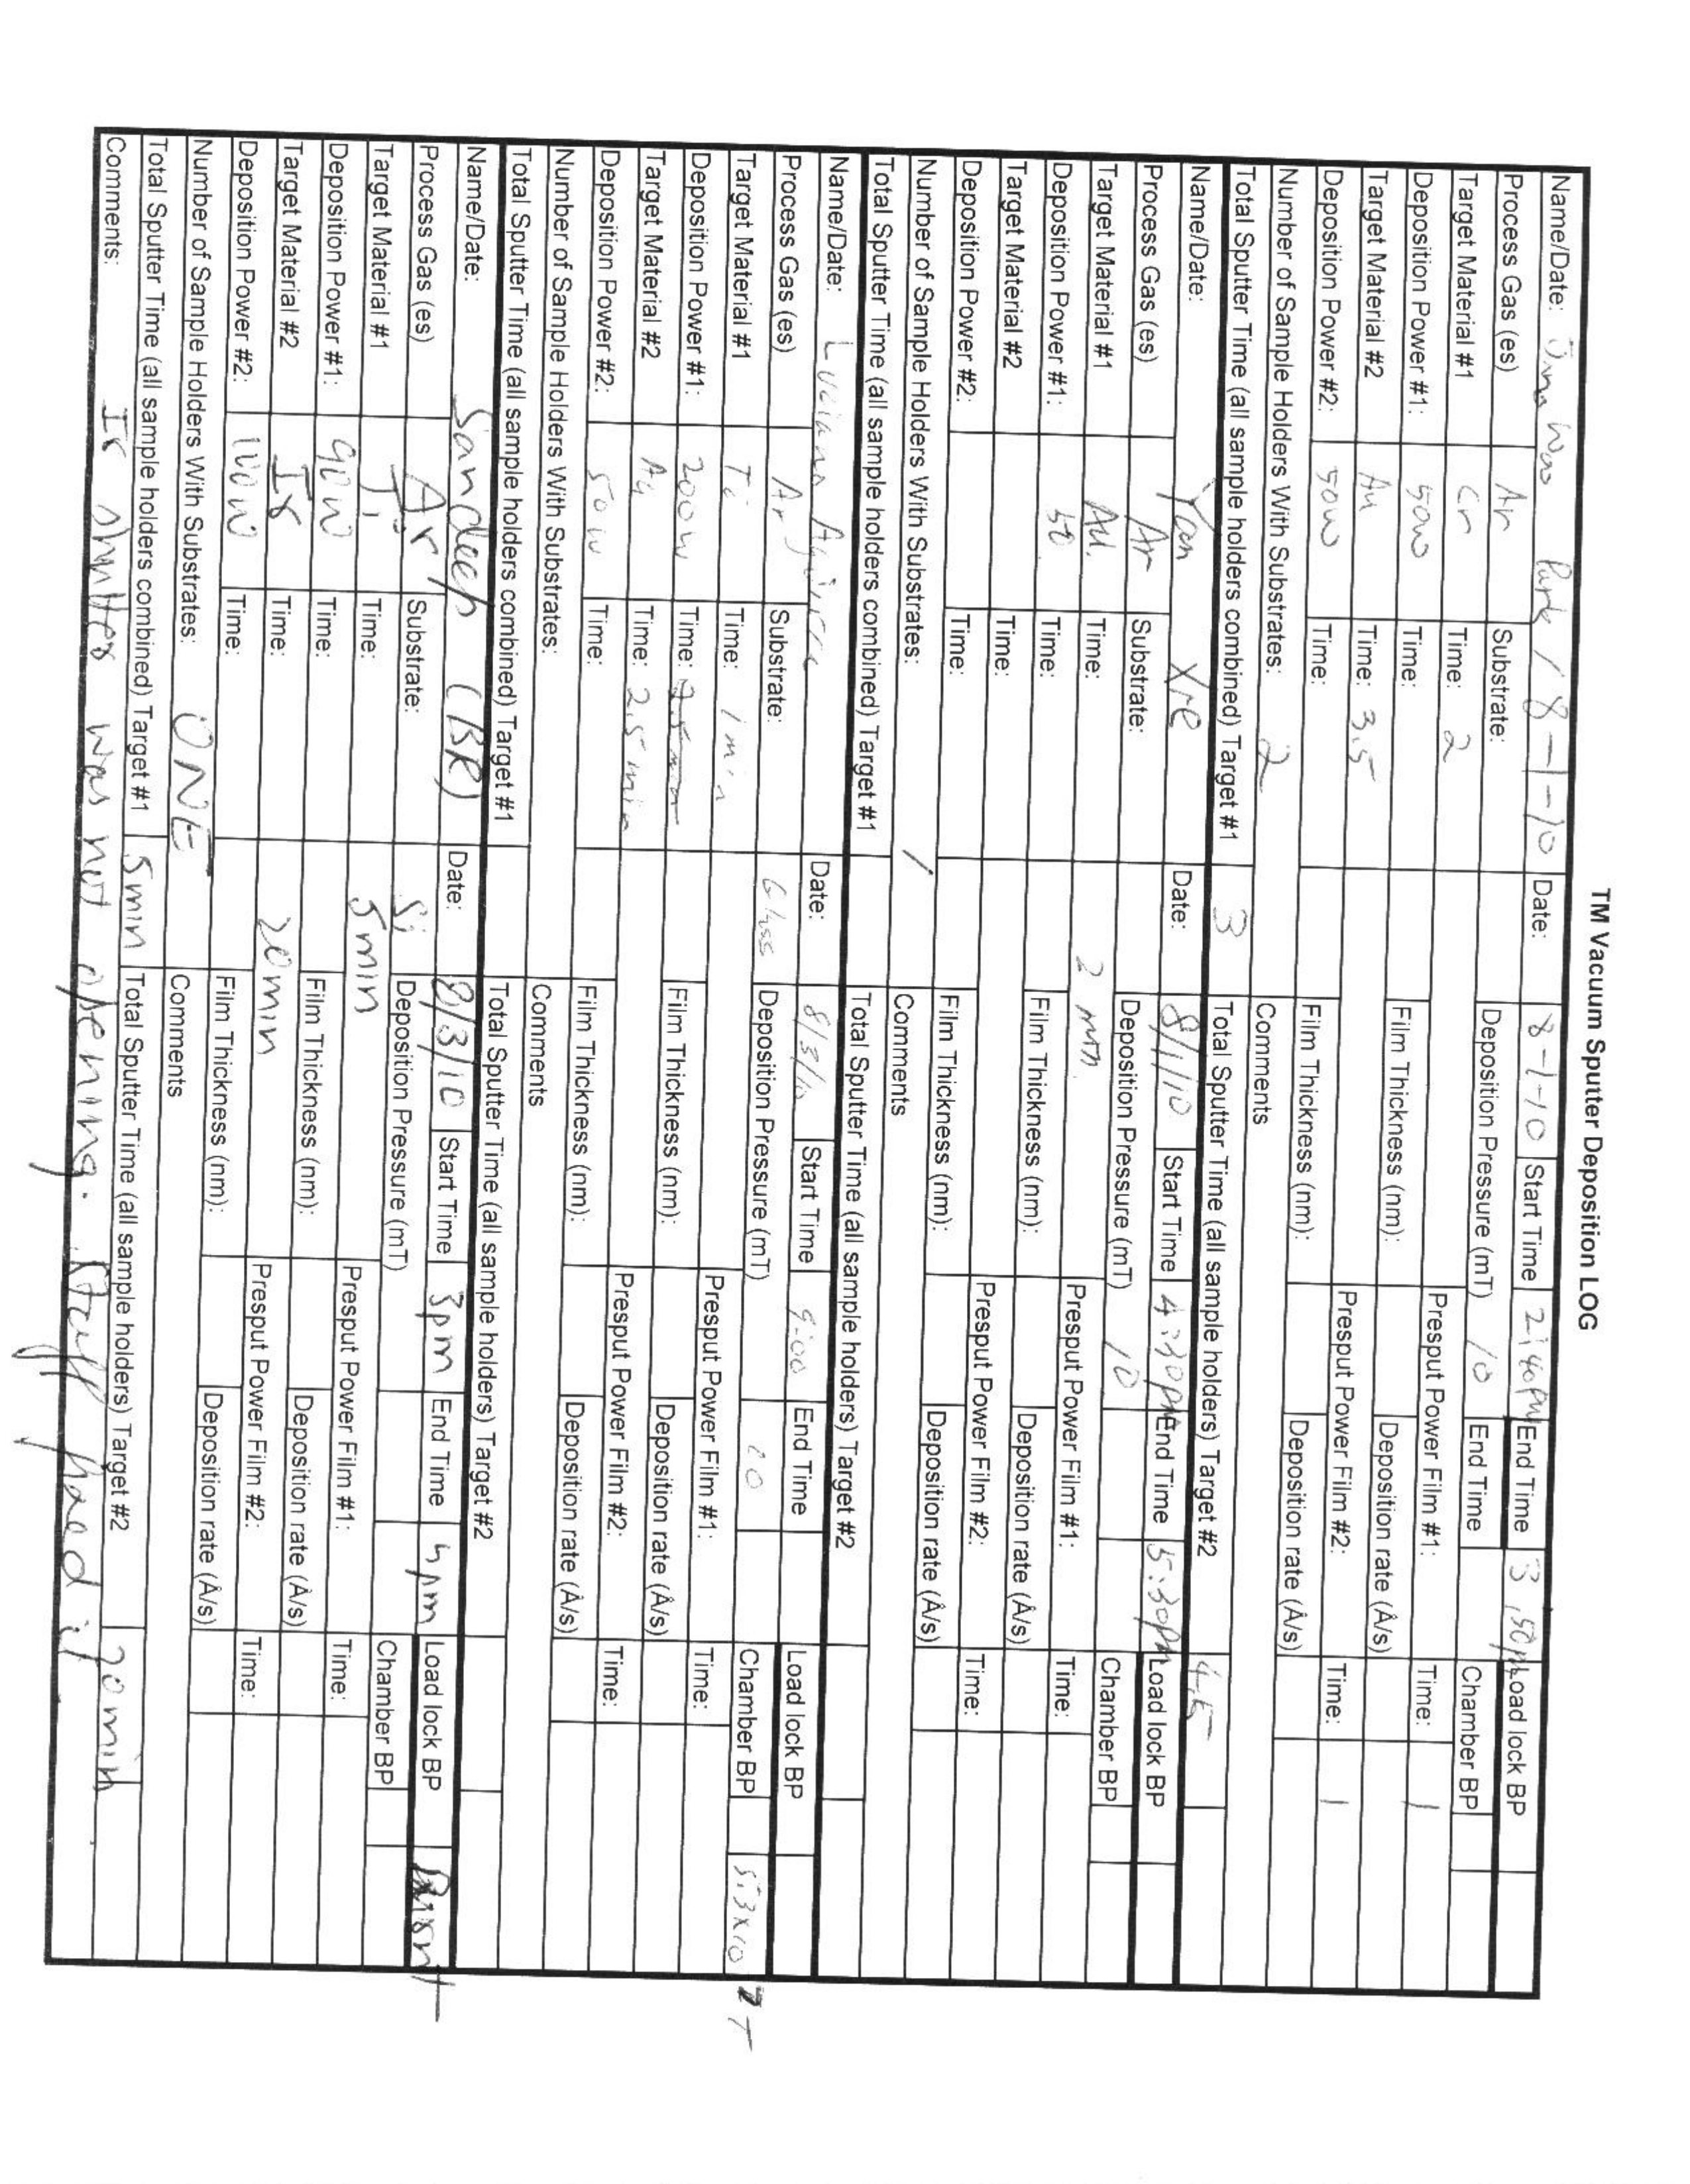 TM Vacuum Sputter Deposition LOG
Name/Date: Jino Woo Park / 8-1-10 Date: 8-1-10 Start Time 2:40 PM End Time 3:50 PM Load lock BP
Process Gas (es) Ar Substrate: Deposition Pressure (mT) 10 End Time Chamber BP
Target Material #1 Cr Time: 2 Presput Power Film #1: Time: 1
Deposition Power #1: 50W Time: Film Thickness (nm): Deposition rate (Å/s)
Target Material #2 Au Time: 3.5 Presput Power Film #2: Time: 1
Deposition Power #2: 50W Time: Film Thickness (nm): Deposition rate (Å/s)
Number of Sample Holders With Substrates: 2 Comments
Total Sputter Time (all sample holders combined) Target #1 3 Total Sputter Time (all sample holders) Target #2 4.5
Name/Date: Yan Xre Date: 8/1/10 Start Time 4:30 PM End Time 5:30 PM Load lock BP
Process Gas (es) Ar Substrate: Deposition Pressure (mT) 10 Chamber BP
Target Material #1 Au. Time: 2 min. Presput Power Film #1: Time:
Deposition Power #1: 50 Time: Film Thickness (nm): Deposition rate (Å/s)
Target Material #2 Time: Presput Power Film #2: Time:
Deposition Power #2: Time: Film Thickness (nm): Deposition rate (Å/s)
Number of Sample Holders With Substrates: 1 Comments
Total Sputter Time (all sample holders combined) Target #1 Total Sputter Time (all sample holders) Target #2
Name/Date: Luciana Aguirre Date: 8/3/10 Start Time 9:00 End Time Load lock BP
Process Gas (es) Ar Substrate: Glass Deposition Pressure (mT) 10 Chamber BP 5.3x10 -7 T
Target Material #1 Ti Time: 1 min Presput Power Film #1: Time:
Deposition Power #1: 200W Time: Film Thickness (nm): Deposition rate (Å/s)
Target Material #2 Au Time: 2.5 min Presput Power Film #2: Time:
Deposition Power #2: 50W Time: Film Thickness (nm): Deposition rate (Å/s)
Number of Sample Holders With Substrates: Comments
Total Sputter Time (all sample holders combined) Target #1 Total Sputter Time (all sample holders) Target #2
Name/Date: Sandeep (BR) Date: 8/3/10 Start Time 3pm End Time 5pm Load lock BP
Process Gas (es) Ar Substrate: Si Deposition Pressure (mT) Chamber BP
Target Material #1 Ti Time: 5min Presput Power Film #1: Time:
Deposition Power #1: 90W Time: Film Thickness (nm): Deposition rate (Å/s)
Target Material #2 Ir Time: 20min Presput Power Film #2: Time:
Deposition Power #2: 100W Time: Film Thickness (nm): Deposition rate (Å/s)
Number of Sample Holders With Substrates: ONE Comments
Total Sputter Time (all sample holders combined) Target #1 5min Total Sputter Time (all sample holders) Target #2 20min
Comments: Ir shutter was not opening. Staff fixed it